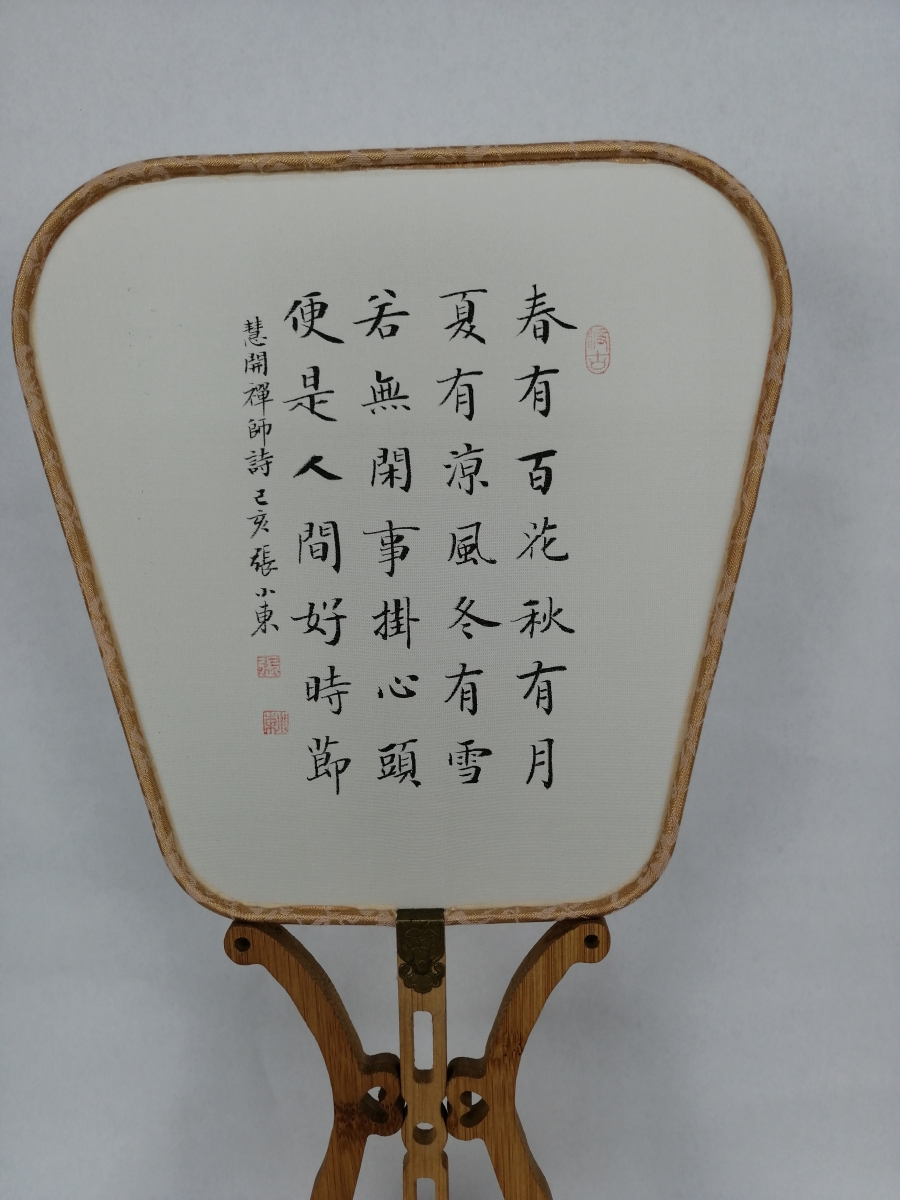 春有百花秋有月
夏有涼風冬有雪
若無閑事掛心頭
便是人間好時節
慧開禪師詩 己亥 張小東